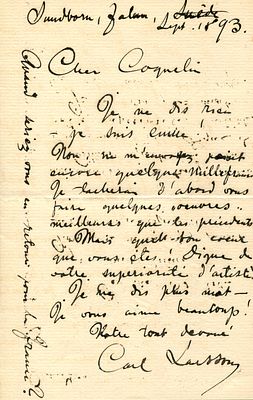 Sundborn, Falun, Suède
Sept. 1893.
Cher Coquelin
Je ne dis rien
je suis
Non ne m'envoyez
encore quelques mille francs
Je tacherai d'abord vous
faire quelques oeuvres
meilleures que les précédents
Mais quel bon coeur
que vous êtes! Digne de
votre superiorité d'artiste
Je ne dis plus mot —
Je vous aime beaucoup!
Votre tout devoué
Carl Larsson
Quand serez vous en retour